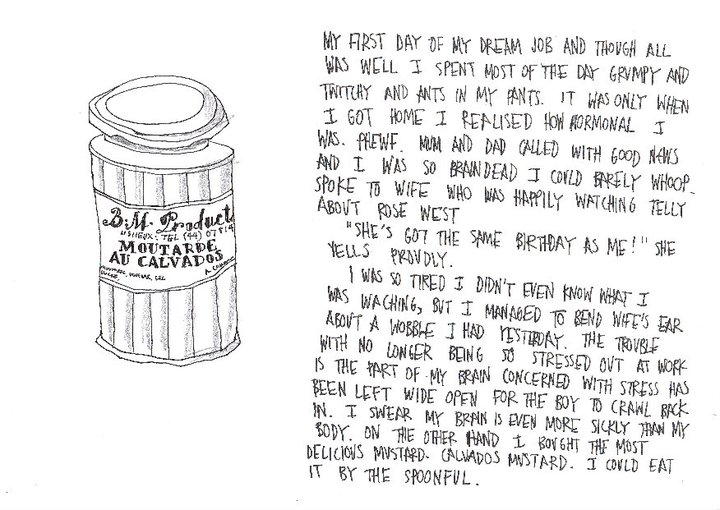 B.M. Product
LISIEUX: TEL (44) 07814
MOUTARDE
AU CALVADOS
MY FIRST DAY OF MY DREAM JOB AND THOUGH ALL
WAS WELL I SPENT MOST OF THE DAY GRUMPY AND
TWITCHY AND ANTS IN MY PANTS. IT WAS ONLY WHEN
I GOT HOME I REALISED HOW HORMONAL I
WAS. PHEWF. MUM AND DAD CALLED WITH GOOD NEWS
AND I WAS SO BRAINDEAD I COULD BARELY WHOOP.
SPOKE TO WIFE WHO WAS HAPPILY WATCHING TELLY
ABOUT ROSE WEST
"SHE'S GOT THE SAME BIRTHDAY AS ME!" SHE
YELLS PROUDLY.
I WAS SO TIRED I DIDN'T EVEN KNOW WHAT I
WAS WACHING, BUT I MANAGED TO BEND WIFE'S EAR
ABOUT A WOBBLE I HAD YESTERDAY. THE TROUBLE
WITH NO LONGER BEING SO STRESSED OUT AT WORK
IS THE PART OF MY BRAIN CONCERNED WITH STRESS HAS
BEEN LEFT WIDE OPEN FOR THE BOY TO CRAWL BACK
IN. I SWEAR MY BRAIN IS EVEN MORE SICKLY THAN MY
BODY. ON THE OTHER HAND I BOUGHT THE MOST
DELICIOUS MUSTARD. CALVADOS MUSTARD. I COULD EAT
IT BY THE SPOONFUL.